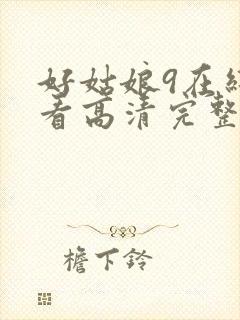 好姑娘9在线
看高清完整
檐下铃